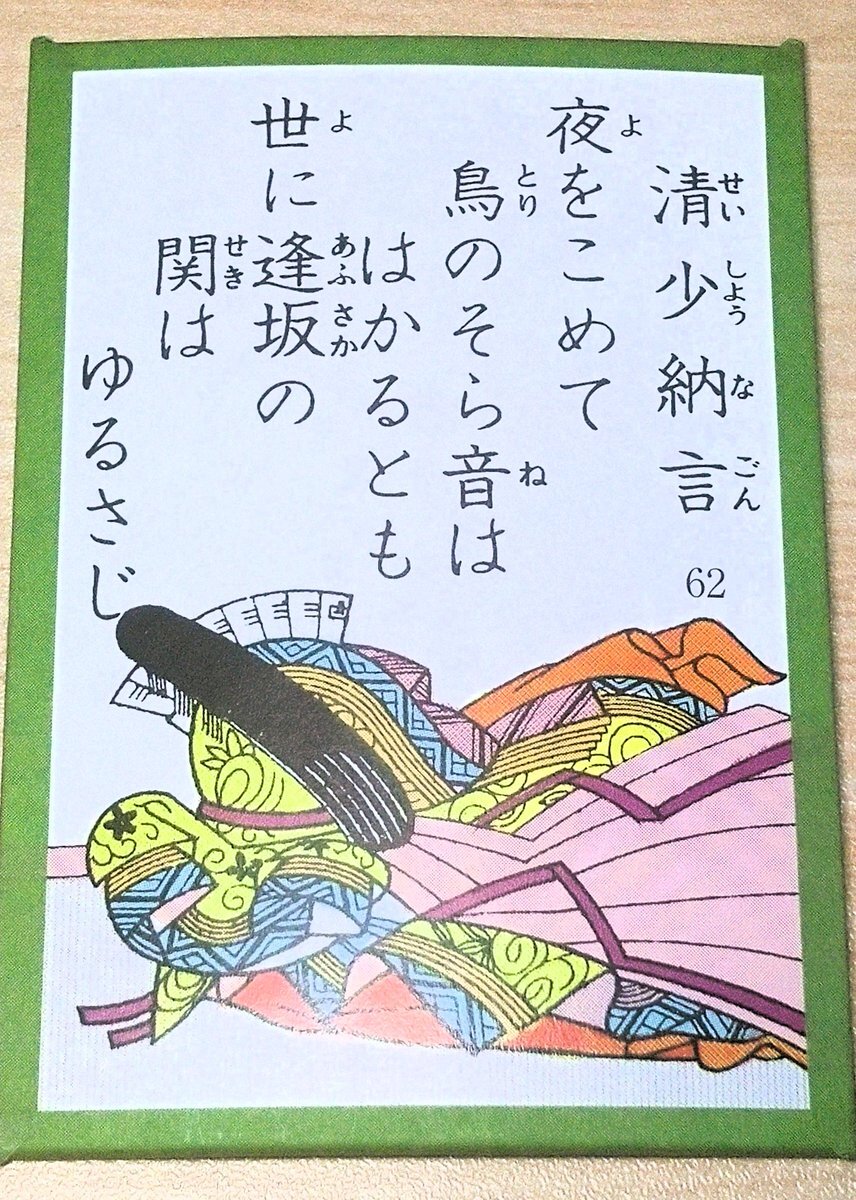 清少納言
せいしようなごん
62
夜をこめて
よ
鳥のそら音は
とりね
はかるとも
世に逢坂の
よあふさか
関は
せき
ゆるさじ